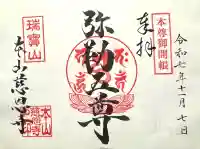 令和七年十一月七日
本尊御開帳
奉拝
弥勒五尊
瑞寶山
本山慈恩寺
本山慈恩寺